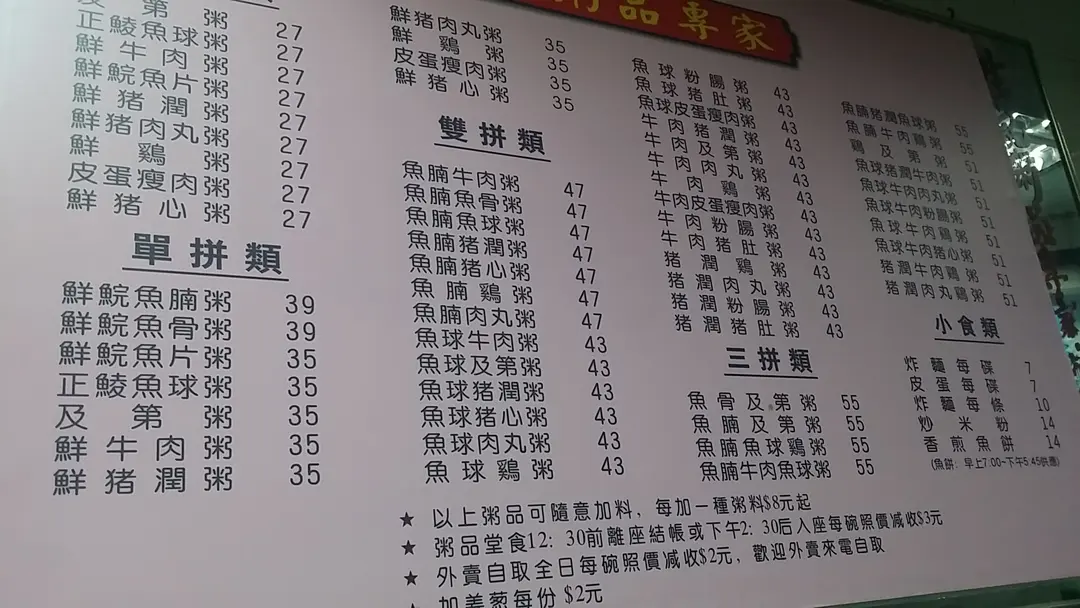 及第粥 27
正鯪魚球粥 27
鮮牛肉粥 27
鮮鯇魚片粥 27
鮮猪潤粥 27
鮮猪肉丸粥 27
鮮鷄粥 27
皮蛋瘦肉粥 27
鮮猪心粥 27
單拼類
鮮鯇魚腩粥 39
鮮鯇魚骨粥 39
鮮鯇魚片粥 35
正鯪魚球粥 35
及第粥 35
鮮牛肉粥 35
鮮猪潤粥 35
鮮猪肉丸粥 35
鮮鷄粥 35
皮蛋瘦肉粥 35
鮮猪心粥 35
雙拼類
魚腩牛肉粥 47
魚腩魚骨粥 47
魚腩魚球粥 47
魚腩猪潤粥 47
魚腩猪心粥 47
魚腩鷄粥 47
魚腩肉丸粥 47
魚球牛肉粥 43
魚球及第粥 43
魚球猪潤粥 43
魚球猪心粥 43
魚球肉丸粥 43
魚球鷄粥 43
品專家
魚球粉腸粥 43
魚球猪肚粥 43
魚球皮蛋瘦肉粥 43
牛肉猪潤粥 43
牛肉及第粥 43
牛肉肉丸粥 43
牛肉鷄粥 43
牛肉皮蛋瘦肉粥 43
牛肉粉腸粥 43
牛肉猪肚粥 43
猪潤鷄粥 43
猪潤肉丸粥 43
猪潤粉腸粥 43
猪潤猪肚粥 43
三拼類
魚骨及第粥 55
魚腩及第粥 55
魚腩魚球鷄粥 55
魚腩牛肉魚球粥 55
魚腩猪潤魚球粥 55
魚腩牛肉鷄粥 55
鷄及第粥 51
魚球猪潤牛肉粥 51
魚球牛肉肉丸粥 51
魚球牛肉粉腸粥 51
魚球牛肉鷄粥 51
魚球牛肉猪心粥 51
猪潤牛肉鷄粥 51
猪潤肉丸鷄粥 51
小食類
炸麵每碟 7
皮蛋每碟 7
炸麵每條 10
炒米粉 14
香煎魚餅 14
(魚餅: 早上7:00~下午5:45供應)
★ 以上粥品可隨意加料, 每加一種粥料$8元起
★ 粥品堂食12: 30前離座結帳或下午2: 30后入座每碗照價减收$3元
★ 外賣自取全日每碗照價减收$2元, 歡迎外賣來電自取
★ 加姜葱每份 $2元